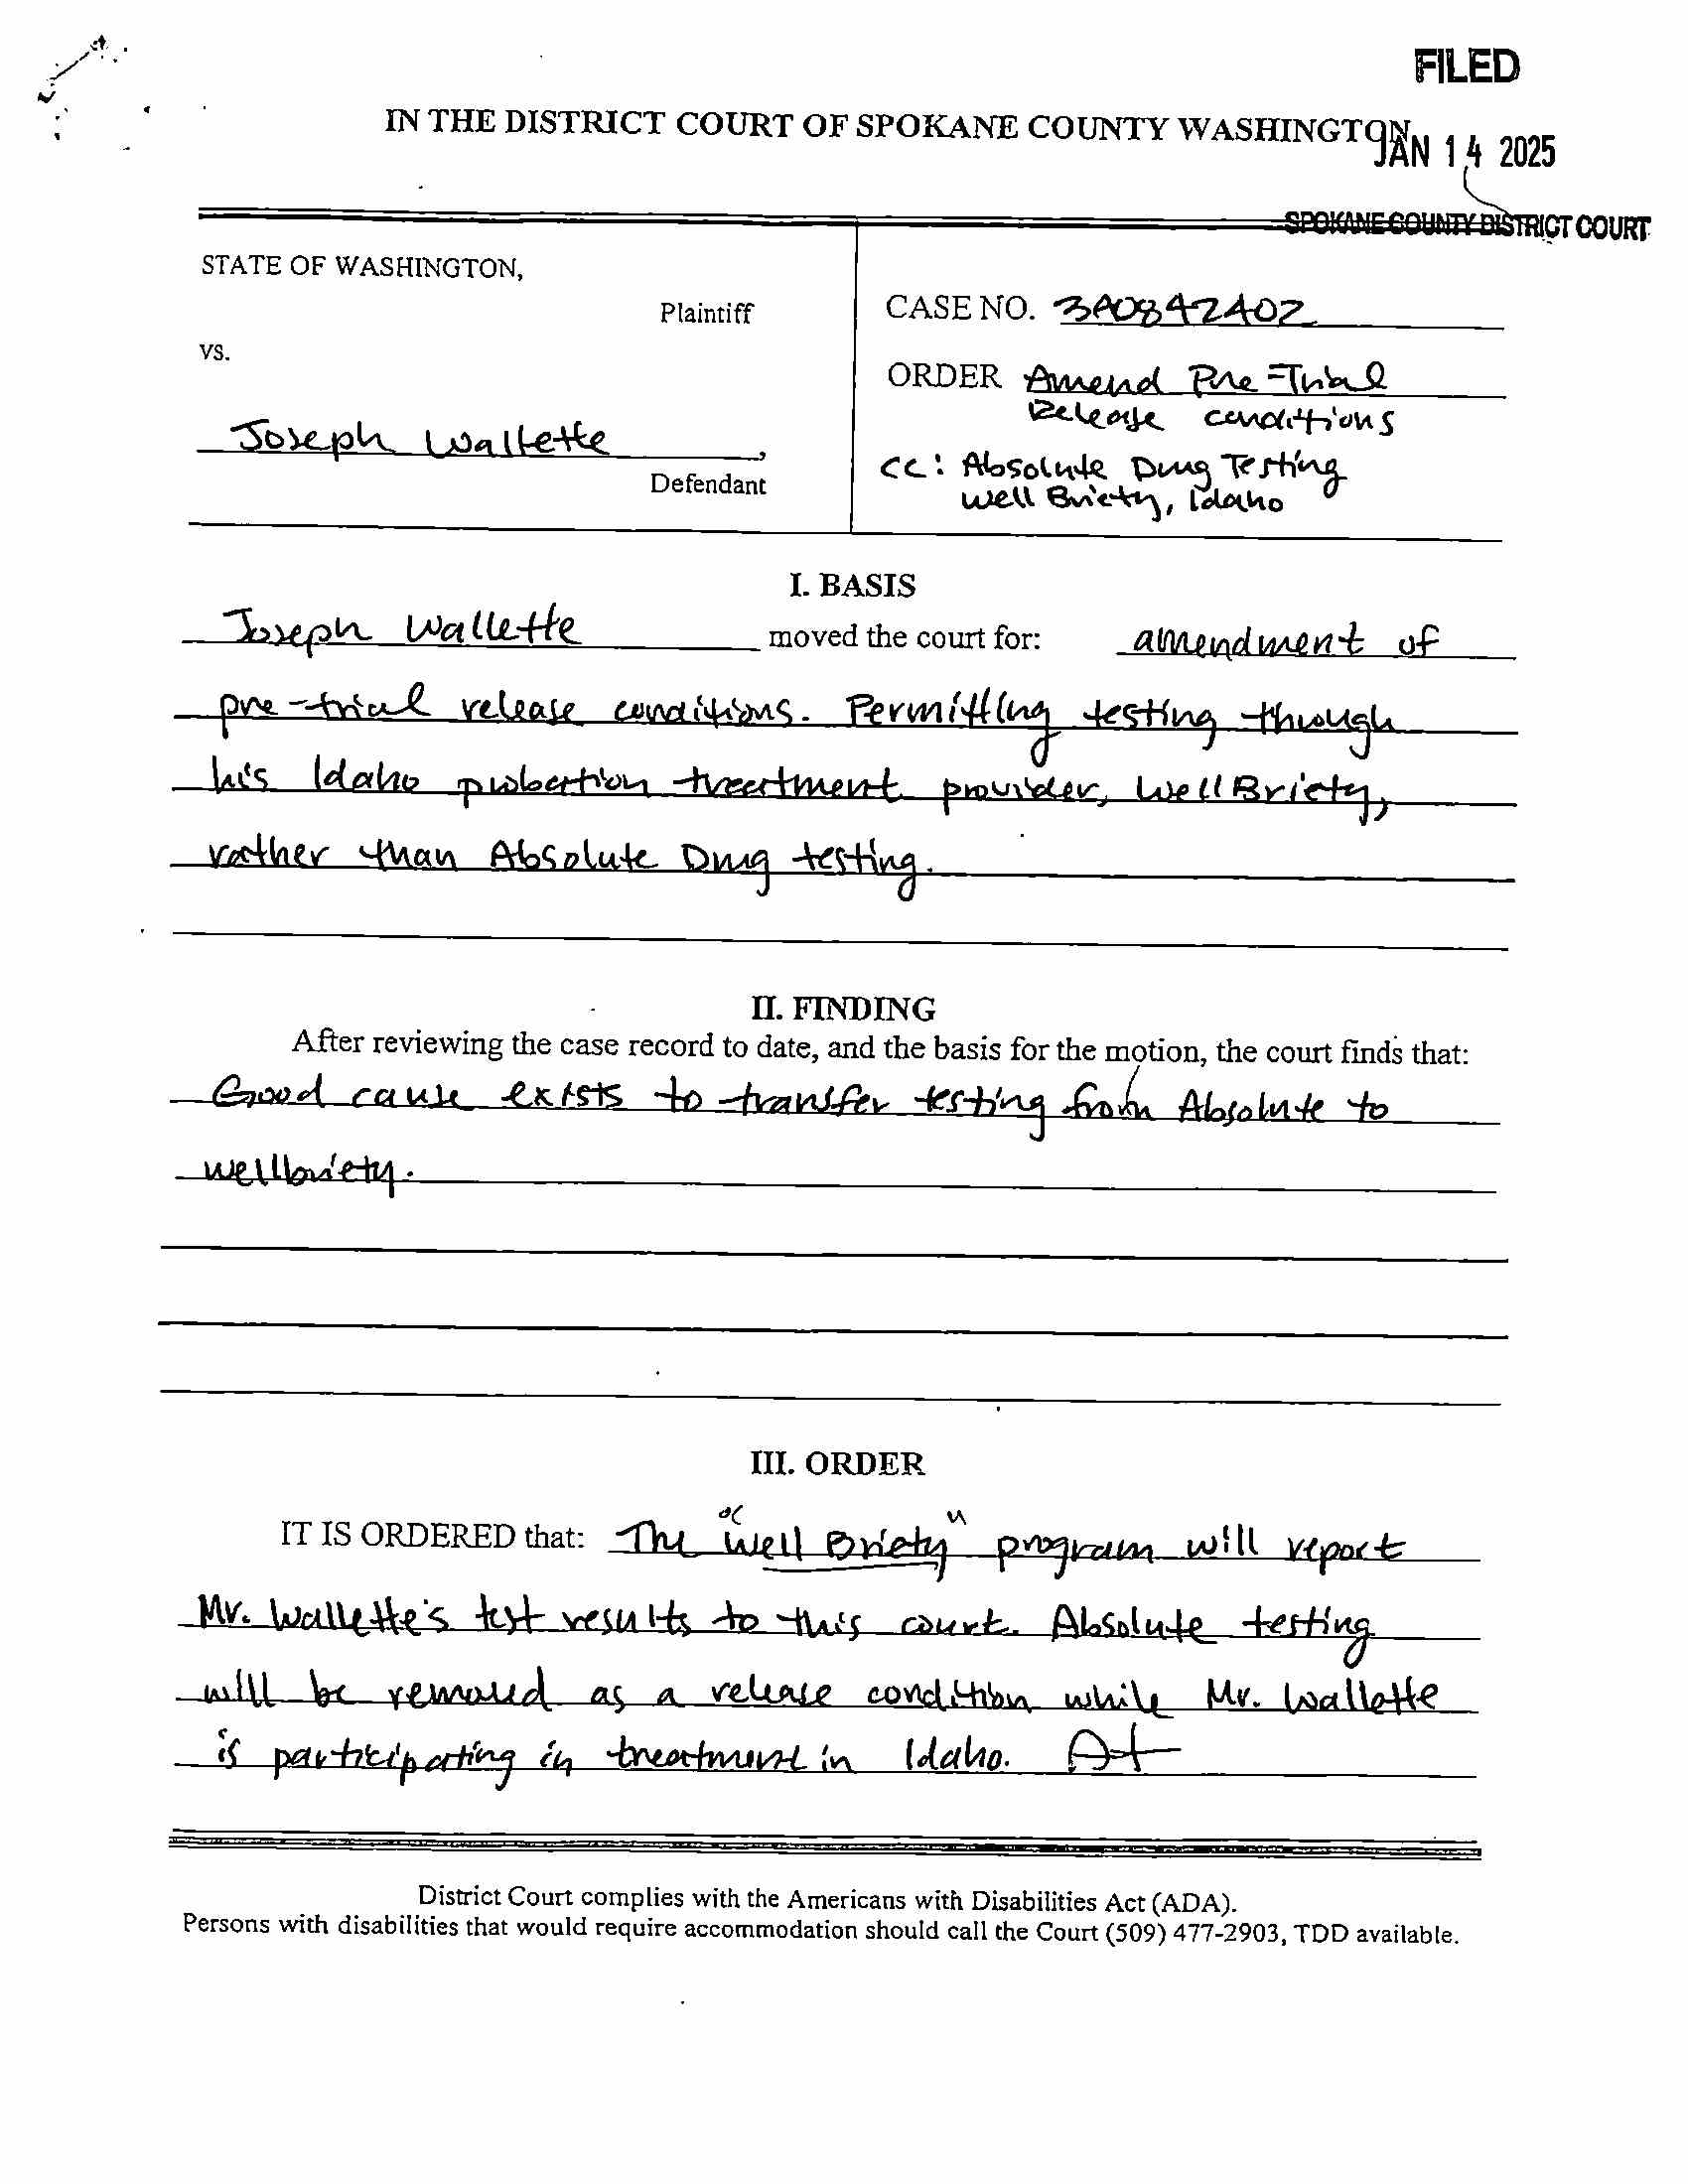 FILED
IN THE DISTRICT COURT OF SPOKANE COUNTY WASHINGTON
JAN 14 2025
SPOKANE COUNTY DISTRICT COURT
STATE OF WASHINGTON,
Plaintiff
vs.
Joseph Wallette,
Defendant
CASE NO. 3A0842402
ORDER Amend Pre-Trial
Release conditions
cc: Absolute Drug Testing
Well Briety, Idaho
I. BASIS
Joseph Wallette moved the court for: amendment of
pre-trial release conditions. Permitting testing through
his Idaho probation treatment provider, WellBriety,
rather than Absolute Drug testing.
II. FINDING
After reviewing the case record to date, and the basis for the motion, the court finds that:
Good cause exists to transfer testing from Absolute to
wellbriety.
III. ORDER
IT IS ORDERED that: The "Well Briety" program will report
Mr. Wallette's test results to this court. Absolute testing
will be removed as a release condition while Mr. Wallette
is participating in treatment in Idaho.
District Court complies with the Americans with Disabilities Act (ADA).
Persons with disabilities that would require accommodation should call the Court (509) 477-2903, TDD available.